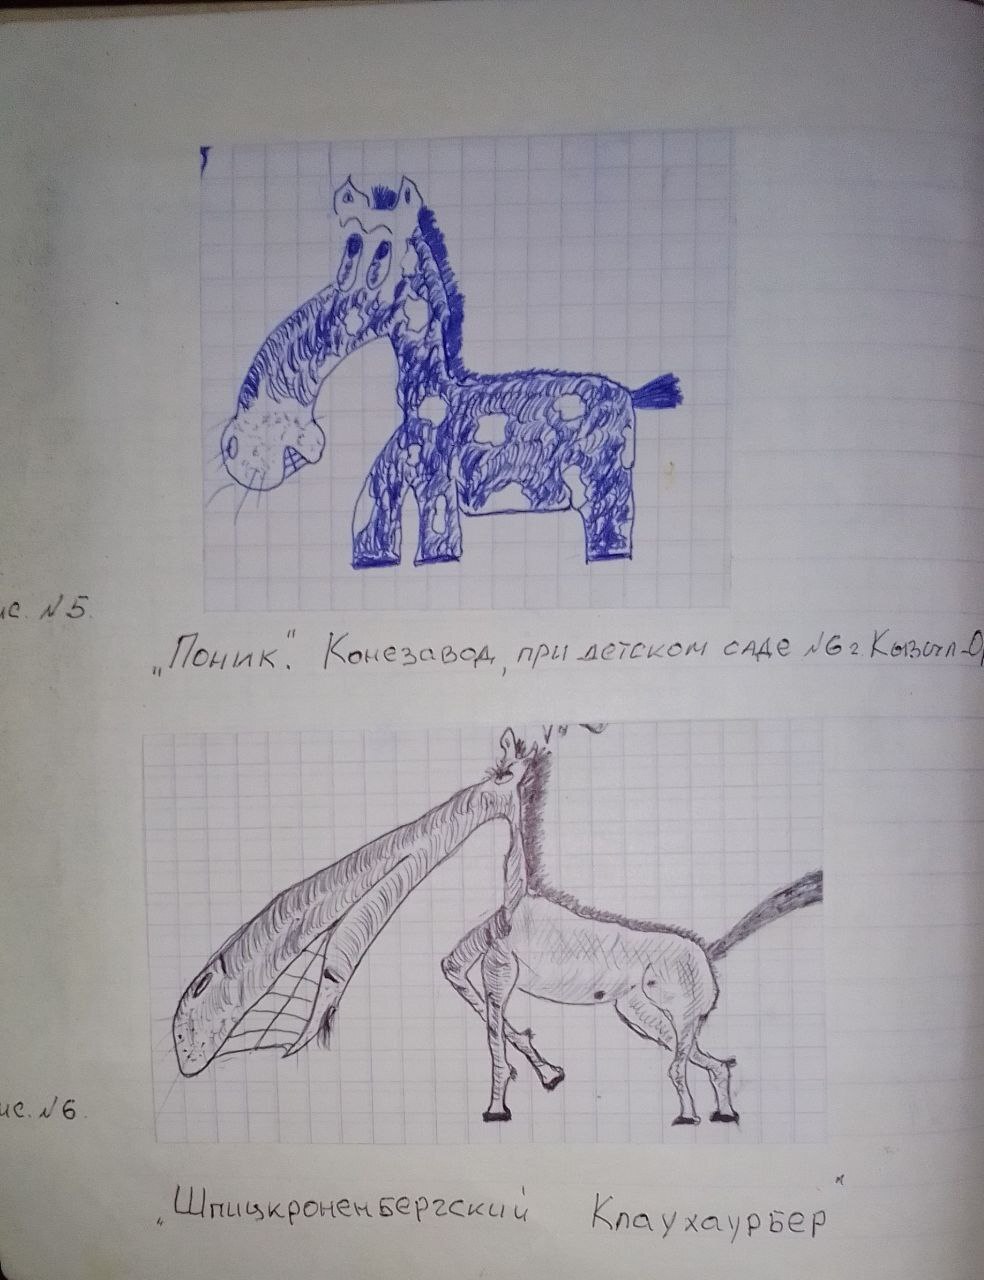 ис. №5.
„Поник". Конезавод, при детском саде №6 г. Кызыл-Ор
ис. №6.
„Шпицкроненбергский Клаухаурбер"